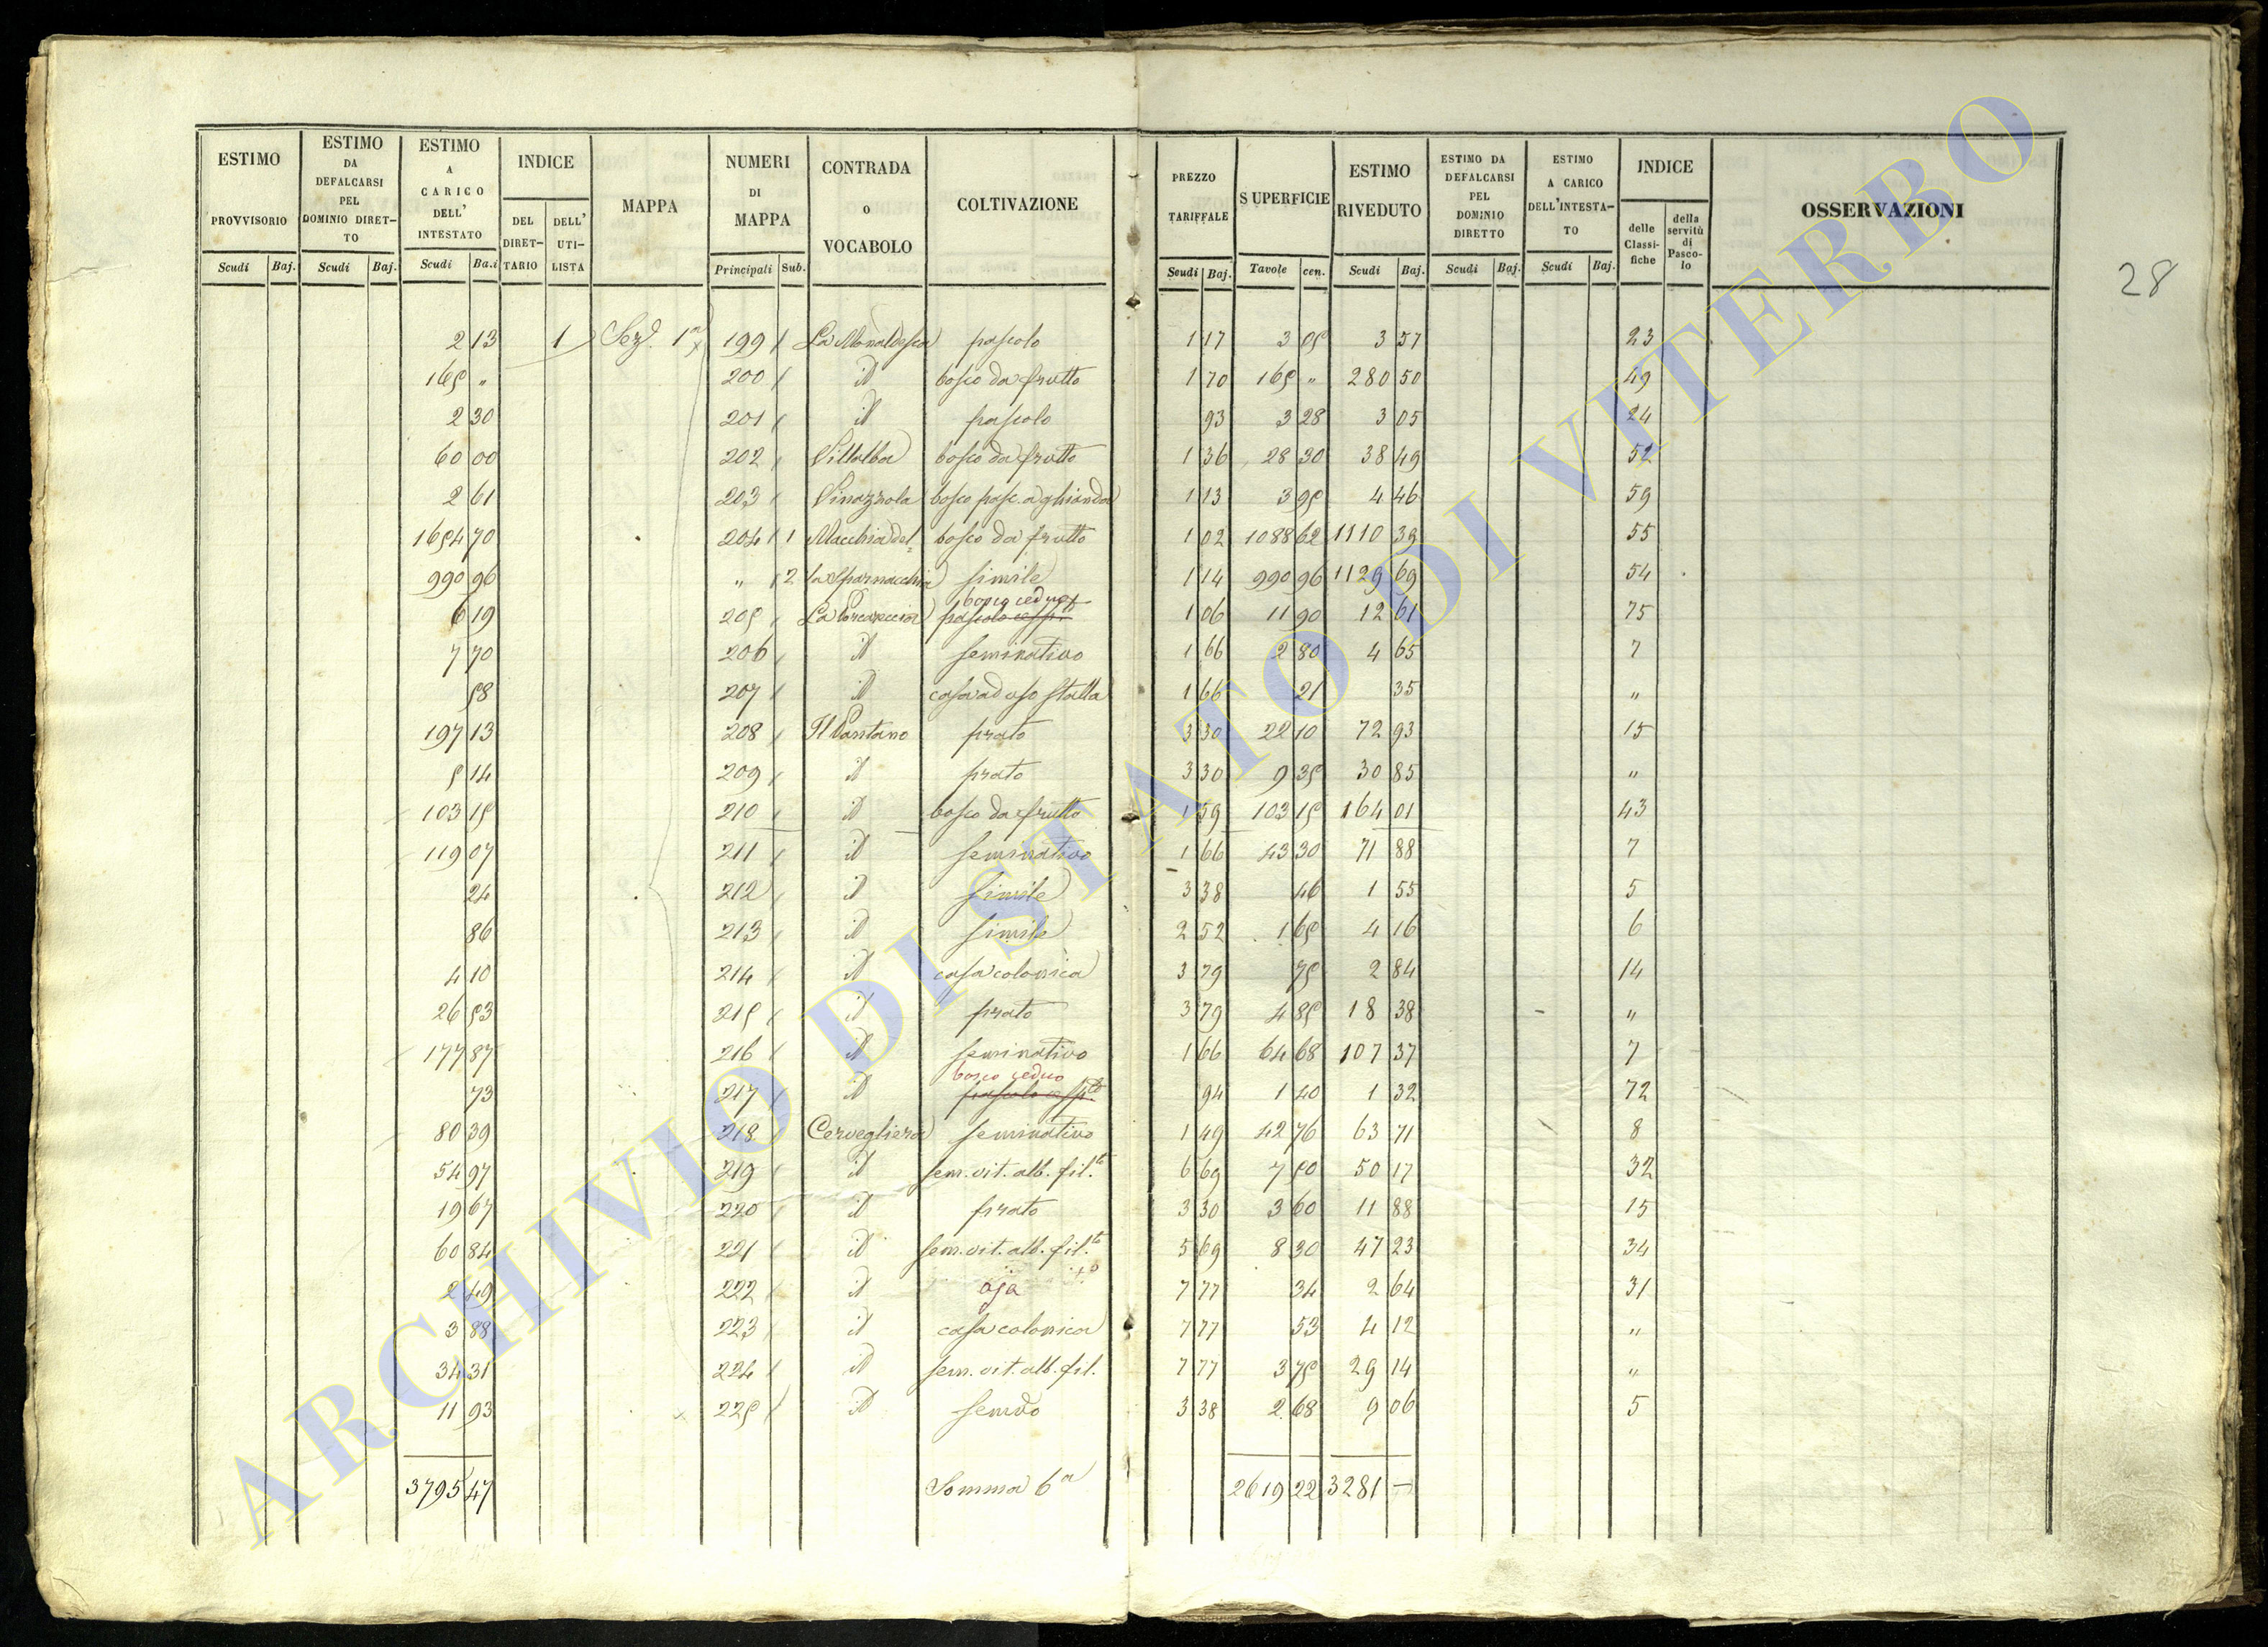 ESTIMO PROVVISORIO | ESTIMO DA DEFALCARSI PEL DOMINIO DIRET-TO | ESTIMO A CARICO DELL' INTESTATO | INDICE | MAPPA | NUMERI DI MAPPA | CONTRADA O VOCABOLO | COLTIVAZIONE | PREZZO TARIFFALE | SUPERFICIE | ESTIMO RIVEDUTO | ESTIMO DA DEFALCARSI PEL DOMINIO DIRETTO | ESTIMO A CARICO DELL'INTESTA-TO | INDICE | OSSERVAZIONI
DEL DIRET-TARIO | DELL' UTI-LISTA | delle Classi-fiche | della servitù di Pasco-lo
Scudi | Baj. | Scudi | Baj. | Scudi | Ba.i | Principali | Sub. | Scudi | Baj. | Tavole | cen. | Scudi | Baj. | Scudi | Baj. | Scudi | Baj.
28
2 13 | 1 | Sez. 1a | 199 | La Monaldesca | pascolo | 1 17 | 3 05 | 3 57 | 23
165 " | 200 | id | bosco da frutto | 1 70 | 165 " | 280 50 | 49
2 30 | 201 | id | pascolo | 93 | 3 28 | 3 05 | 24
60 00 | 202 | Villalba | bosco da frutto | 1 36 | 28 30 | 38 49 | 52
2 61 | 203 | Pinazzola | bosco pasc. a ghianda | 1 13 | 3 95 | 4 46 | 59
1654 70 | 204 | 1 | Macchia del= | bosco da frutto | 1 02 | 1088 62 | 1110 39 | 55
990 96 | " | 2 | la Sparnacchia | simile | 1 14 | 990 96 | 1129 69 | 54
6 19 | 205 | La Porcareccia | bosco ceduo | 1 06 | 11 90 | 12 61 | 75
7 70 | 206 | id | seminativo | 1 66 | 2 80 | 4 65 | 7
58 | 207 | id | casa ad uso stalla | 1 66 | 21 | 35 | "
197 13 | 208 | Il Pantano | prato | 3 30 | 22 10 | 72 93 | 15
5 14 | 209 | id | prato | 3 30 | 9 35 | 30 85 | "
103 15 | 210 | id | bosco da frutto | 1 59 | 103 15 | 164 01 | 43
119 07 | 211 | id | seminativo | 1 66 | 43 30 | 71 88 | 7
24 | 212 | id | simile | 3 38 | 46 | 1 55 | 5
86 | 213 | id | simile | 2 52 | 1 65 | 4 16 | 6
4 10 | 214 | id | casa colonica | 3 79 | 75 | 2 84 | 14
26 53 | 215 | id | prato | 3 79 | 4 85 | 18 38 | "
177 87 | 216 | id | seminativo | 1 66 | 64 68 | 107 37 | 7
73 | 217 | id | bosco ceduo | 94 | 1 40 | 1 32 | 72
80 39 | 218 | Cervegliera | seminativo | 1 49 | 42 76 | 63 71 | 8
54 97 | 219 | id | sem. vit. alb. fil.to | 6 69 | 7 50 | 50 17 | 32
19 67 | 220 | id | prato | 3 30 | 3 60 | 11 88 | 15
60 84 | 221 | id | sem. vit. alb. fil.to | 5 69 | 8 30 | 47 23 | 34
2 49 | 222 | id | aja | 7 77 | 34 | 2 64 | 31
3 88 | 223 | id | casa colonica | 7 77 | 53 | 4 12 | "
34 31 | 224 | id | sem. vit. alb. fil. | 7 77 | 3 75 | 29 14 | "
11 93 | 225 | id | semvo | 3 38 | 2 68 | 9 06 | 5
3795 47 | Somma 6a | 2619 22 | 3281 —
ARCHIVIO DI STATO DI VITERBO